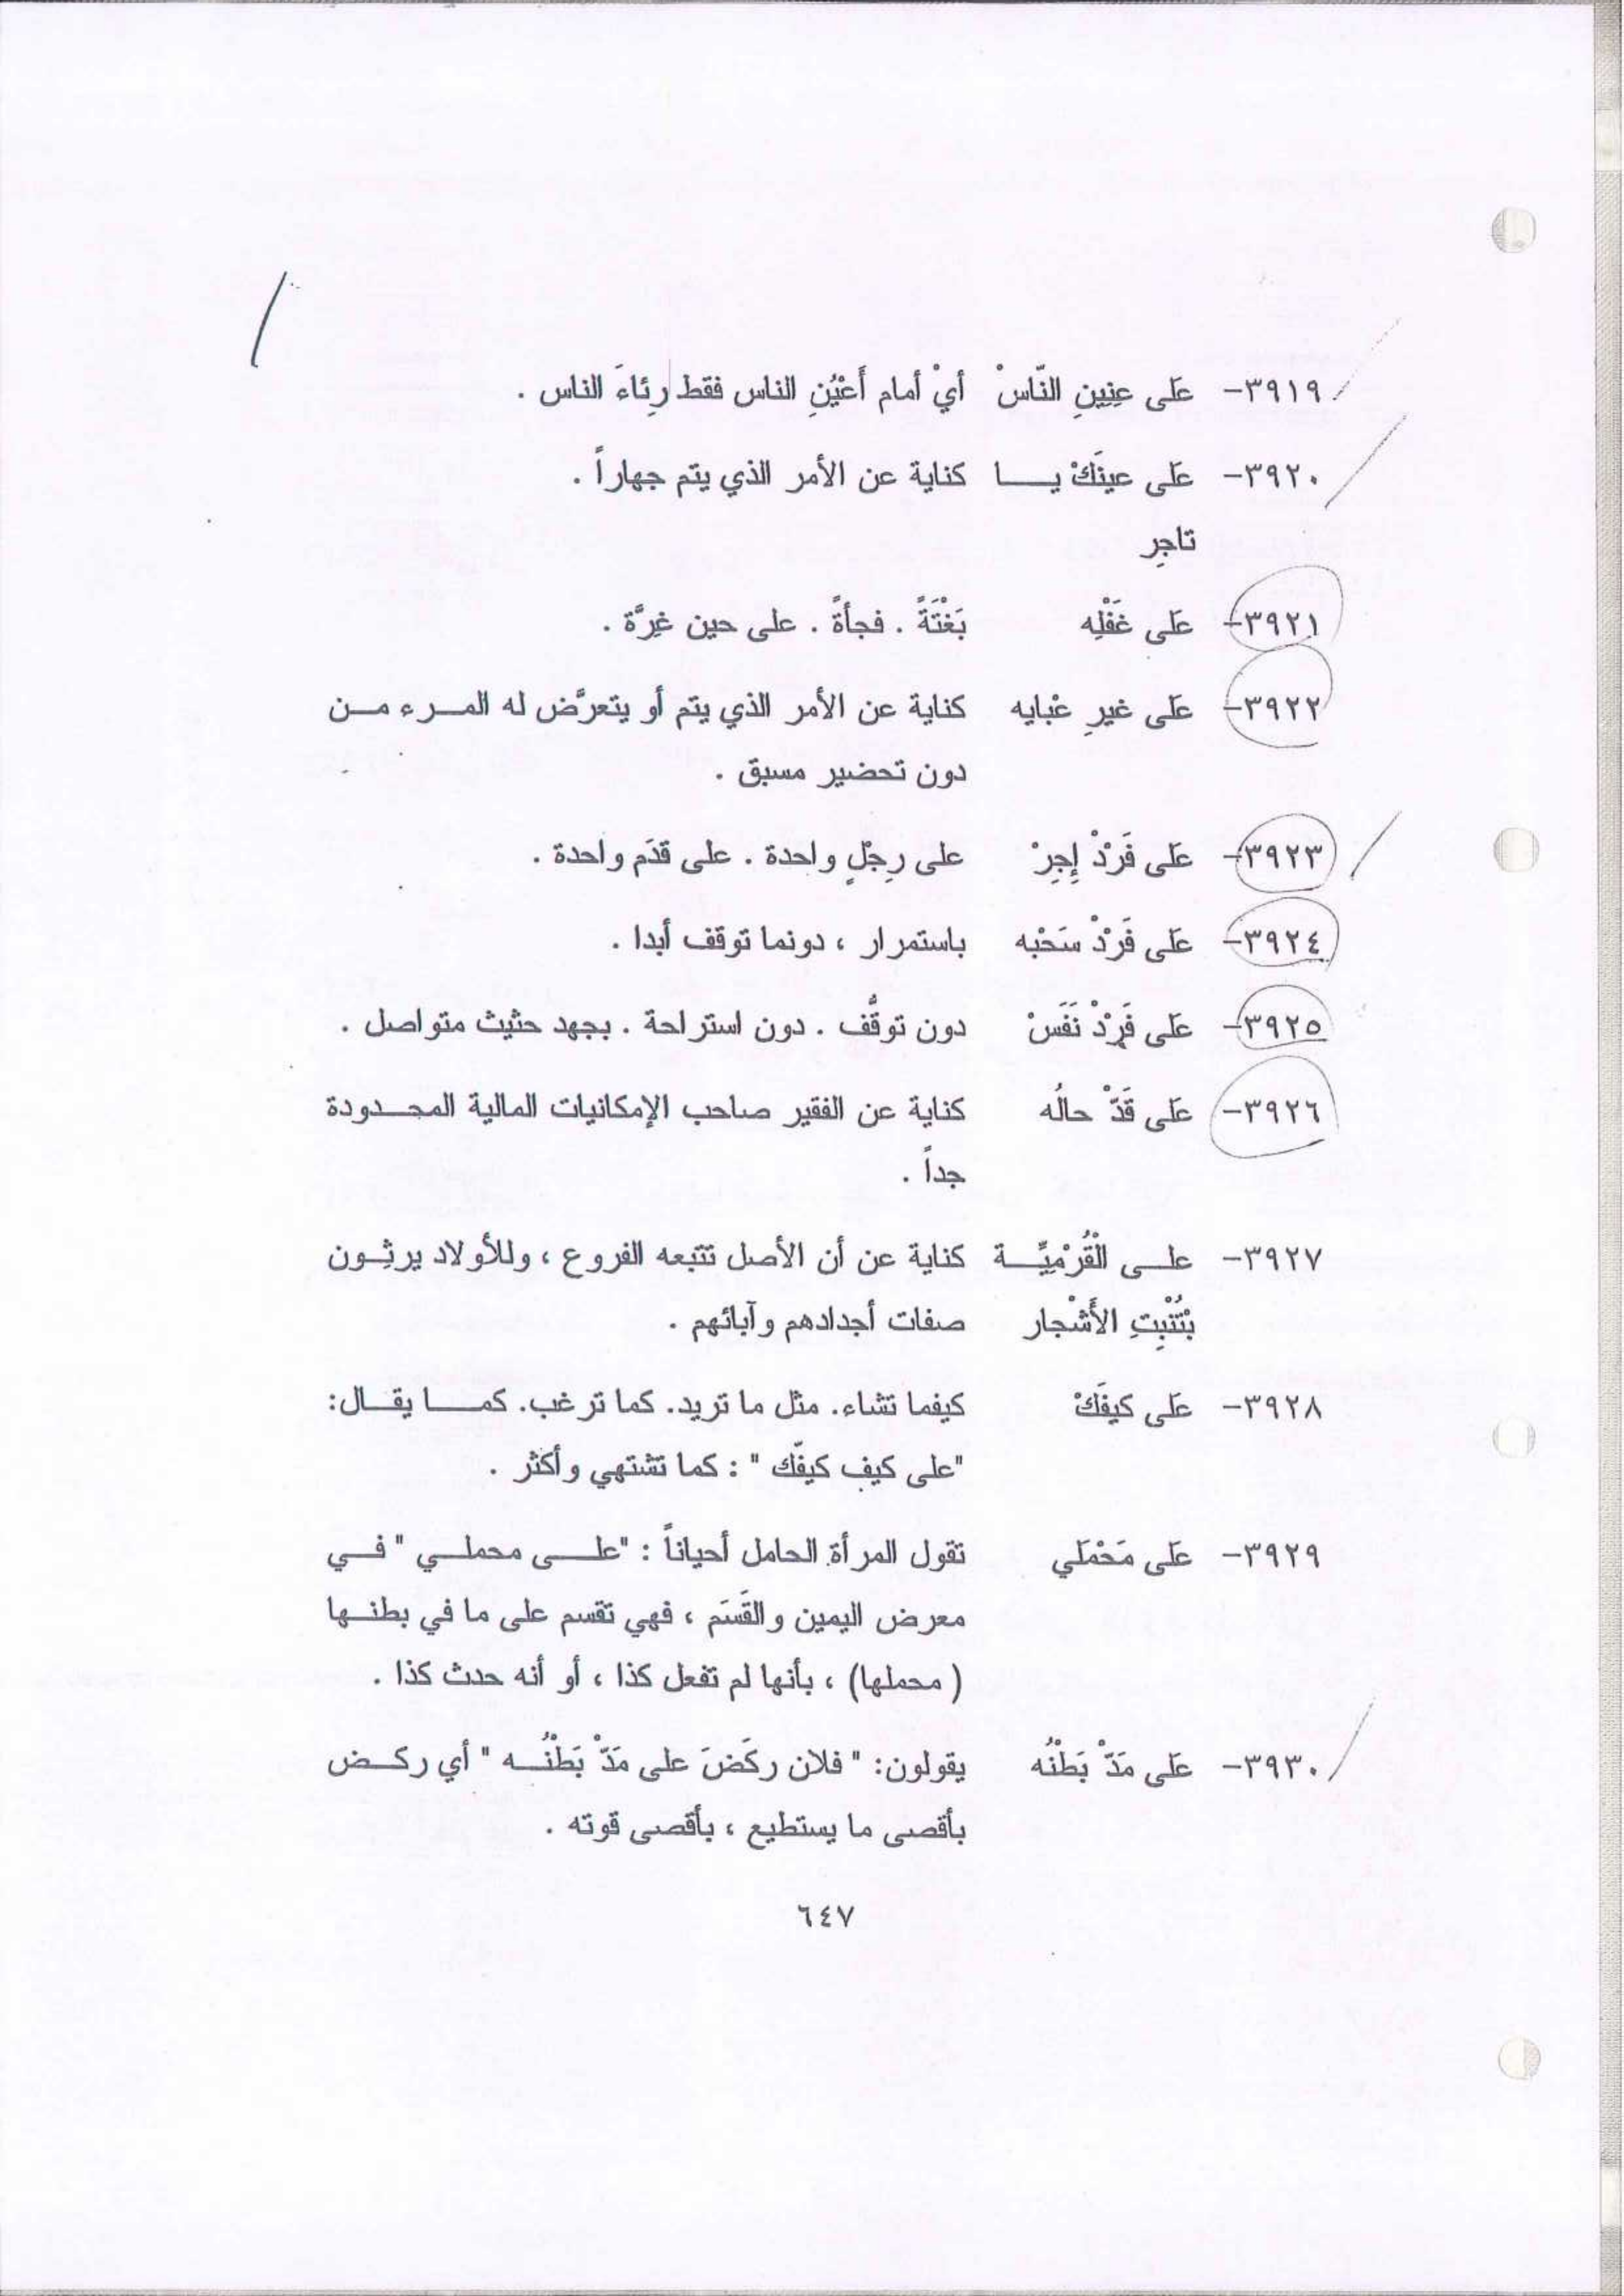 ٣٩١٩- عَلى عِنِينِ النّاسْ أيْ أمام أَعْيُنِ الناس فقط رِئاءَ الناس .
٣٩٢٠- عَلى عينَكْ يـــا كناية عن الأمر الذي يتم جهاراً .
تاجِر
٣٩٢١- عَلى غَفْلِه بَغْتَةً . فجأةً . على حين غِرَّة .
٣٩٢٢- عَلى غيرِ عْبايه كناية عن الأمر الذي يتم أو يتعرَّض له المــرء مــن
دون تحضير مسبق .
٣٩٢٣- عَلى فَرْدْ إِجِرْ على رِجْلٍ واحدة . على قدَم واحدة .
٣٩٢٤- عَلى فَرْدْ سَحْبه باستمرار ، دونما توقف أبدا .
٣٩٢٥- عَلى فَرْدْ نَفَسْ دون توقُّف . دون استراحة . بجهد حثيث متواصل .
٣٩٢٦- عَلى قَدّْ حالُه كناية عن الفقير صاحب الإمكانيات المالية المحــدودة
جداً .
٣٩٢٧- علــى الْقُرْمِيِّــة كناية عن أن الأصل تتبعه الفروع ، وللأولاد يرثِــون
بْتُنْبِتِ الأَشْجار صفات أجدادهم وآبائهم .
٣٩٢٨- عَلى كيفَكْ كيفما تشاء. مثل ما تريد. كما ترغب. كمـــا يقــال:
"على كيف كيفَّك " : كما تشتهي وأكثر .
٣٩٢٩- عَلى مَحْمَلي تقول المرأة الحامل أحياناً : "علــى محملــي " فــي
معرض اليمين والقَسَم ، فهي تقسم على ما في بطنــها
( محملها) ، بأنها لم تفعل كذا ، أو أنه حدث كذا .
٣٩٣٠- عَلى مَدّْ بَطْنُه يقولون: " فلان ركَضَ على مَدّْ بَطْنُــه " أي ركــض
بأقصى ما يستطيع ، بأقصى قوته .
٦٤٧